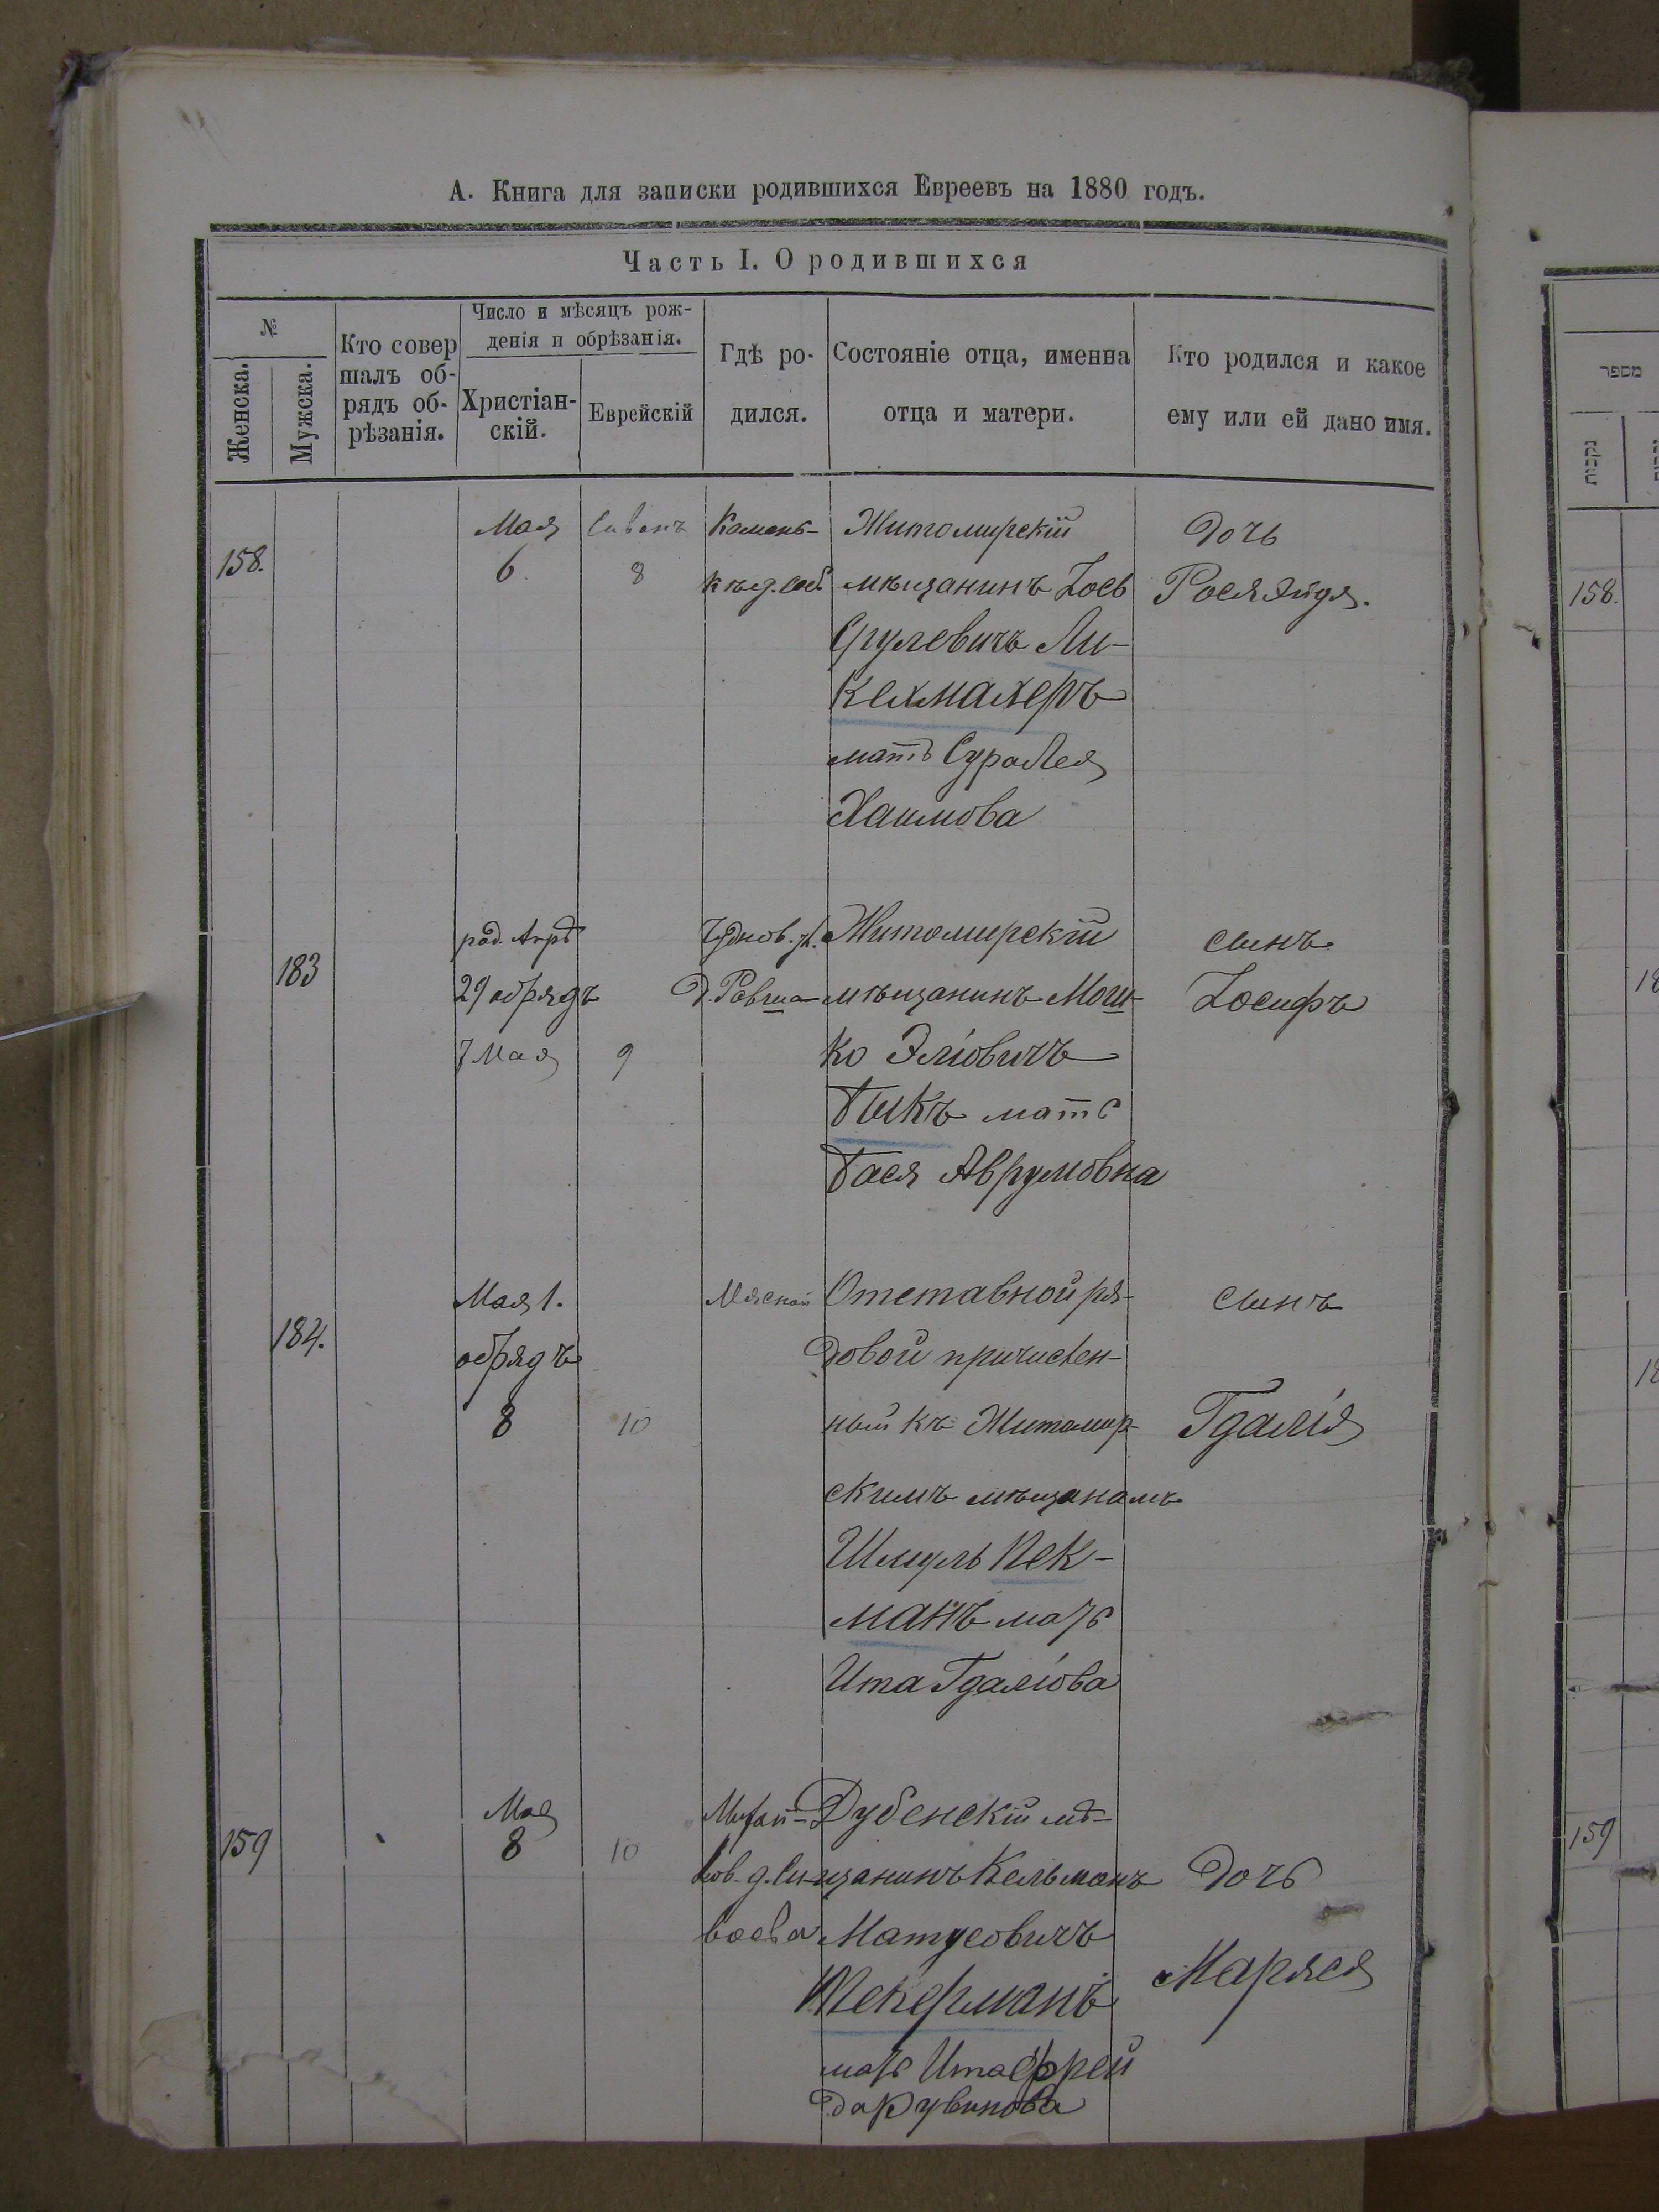 А. Книга для записки родившихся Евреевъ на 1880 годъ.
Часть I. О родившихся
№
Женска.
Мужска.
Кто совер
шалъ об-
рядъ об-
рѣзанія.
Число и мѣсяцъ рож-
денія и обрѣзанія.
Христіан-
скій.
Еврейскій
Гдѣ ро-
дился.
Состояніе отца, именна
отца и матери.
Кто родился и какое
ему или ей дано имя.
158.
Мая
6
Сиванъ
8
Камень-
Житомирскій
мѣщанинъ Іось
Срулевичъ Ли-
кехмахеръ
мать СураЛея
Хаимова
Дочь
Рося Эйдя.
183
род. Апрѣ
29 обрядъ
7 Мая
9
Чуднов. у.
Житомирскій
мѣщанинъ Мош-
ко Эліовичъ
Быкъ мать
Бася Аврумовна
сынъ
Іосифъ
184.
Мая 1.
обрядъ
8
10
Отставной ря-
довой причислен-
ный къ Житомир-
скимъ мѣщанамъ
Шмуль Пек-
манъ мать
Ита Гдаліова
сынъ
Гдалія
159
Мая
8
10
Михай-
лов. д. Си-
воева
Дубенскій мѣ-
щанинъ Кельманъ
Матусовичъ
Текерманъ
мать Ита Фрей
да Рувинова
Дочь
Маряся
מספר
נקבות
158.
159